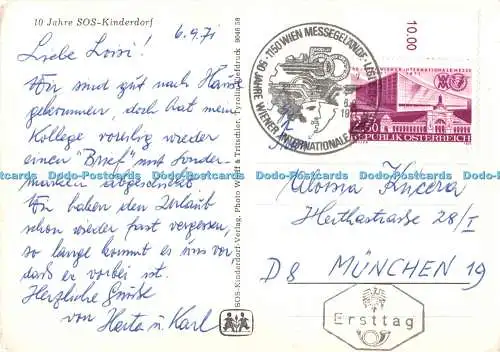 10 Jahre SOS-Kinderdorf
6.9.71
Liebe Loisi!
Wir sind gut nach Hause
gekommen, doch hat mein
Kollege voreilig wieder
einen "Brief" mit Sonder-
marken abgeschickt
Wir haben den Urlaub
schon wieder fast vergessen,
so lange kommt es uns vor
daß er vorbei ist.
Herzliche Grüße
von Herta u. Karl
SOS-Kinderdorf-Verlag, Photo
Tritschler, Tyrol
9046 58
1150 WIEN MESSEGELÄNDE
50 JAHRE WIENER INTERNATIONALE
50
10.00
2.50
REPUBLIK ÖSTERREICH
Aloisia Kucera
Herthastrasse 28/I
D 8 MÜNCHEN 19
Ersttag
Dodo-Postcards Dodo-Postcards Dodo-Postcards Dodo-Postcards
Dodo-Postcards Dodo-Postcards Dodo-Postcards Dodo-Postcards